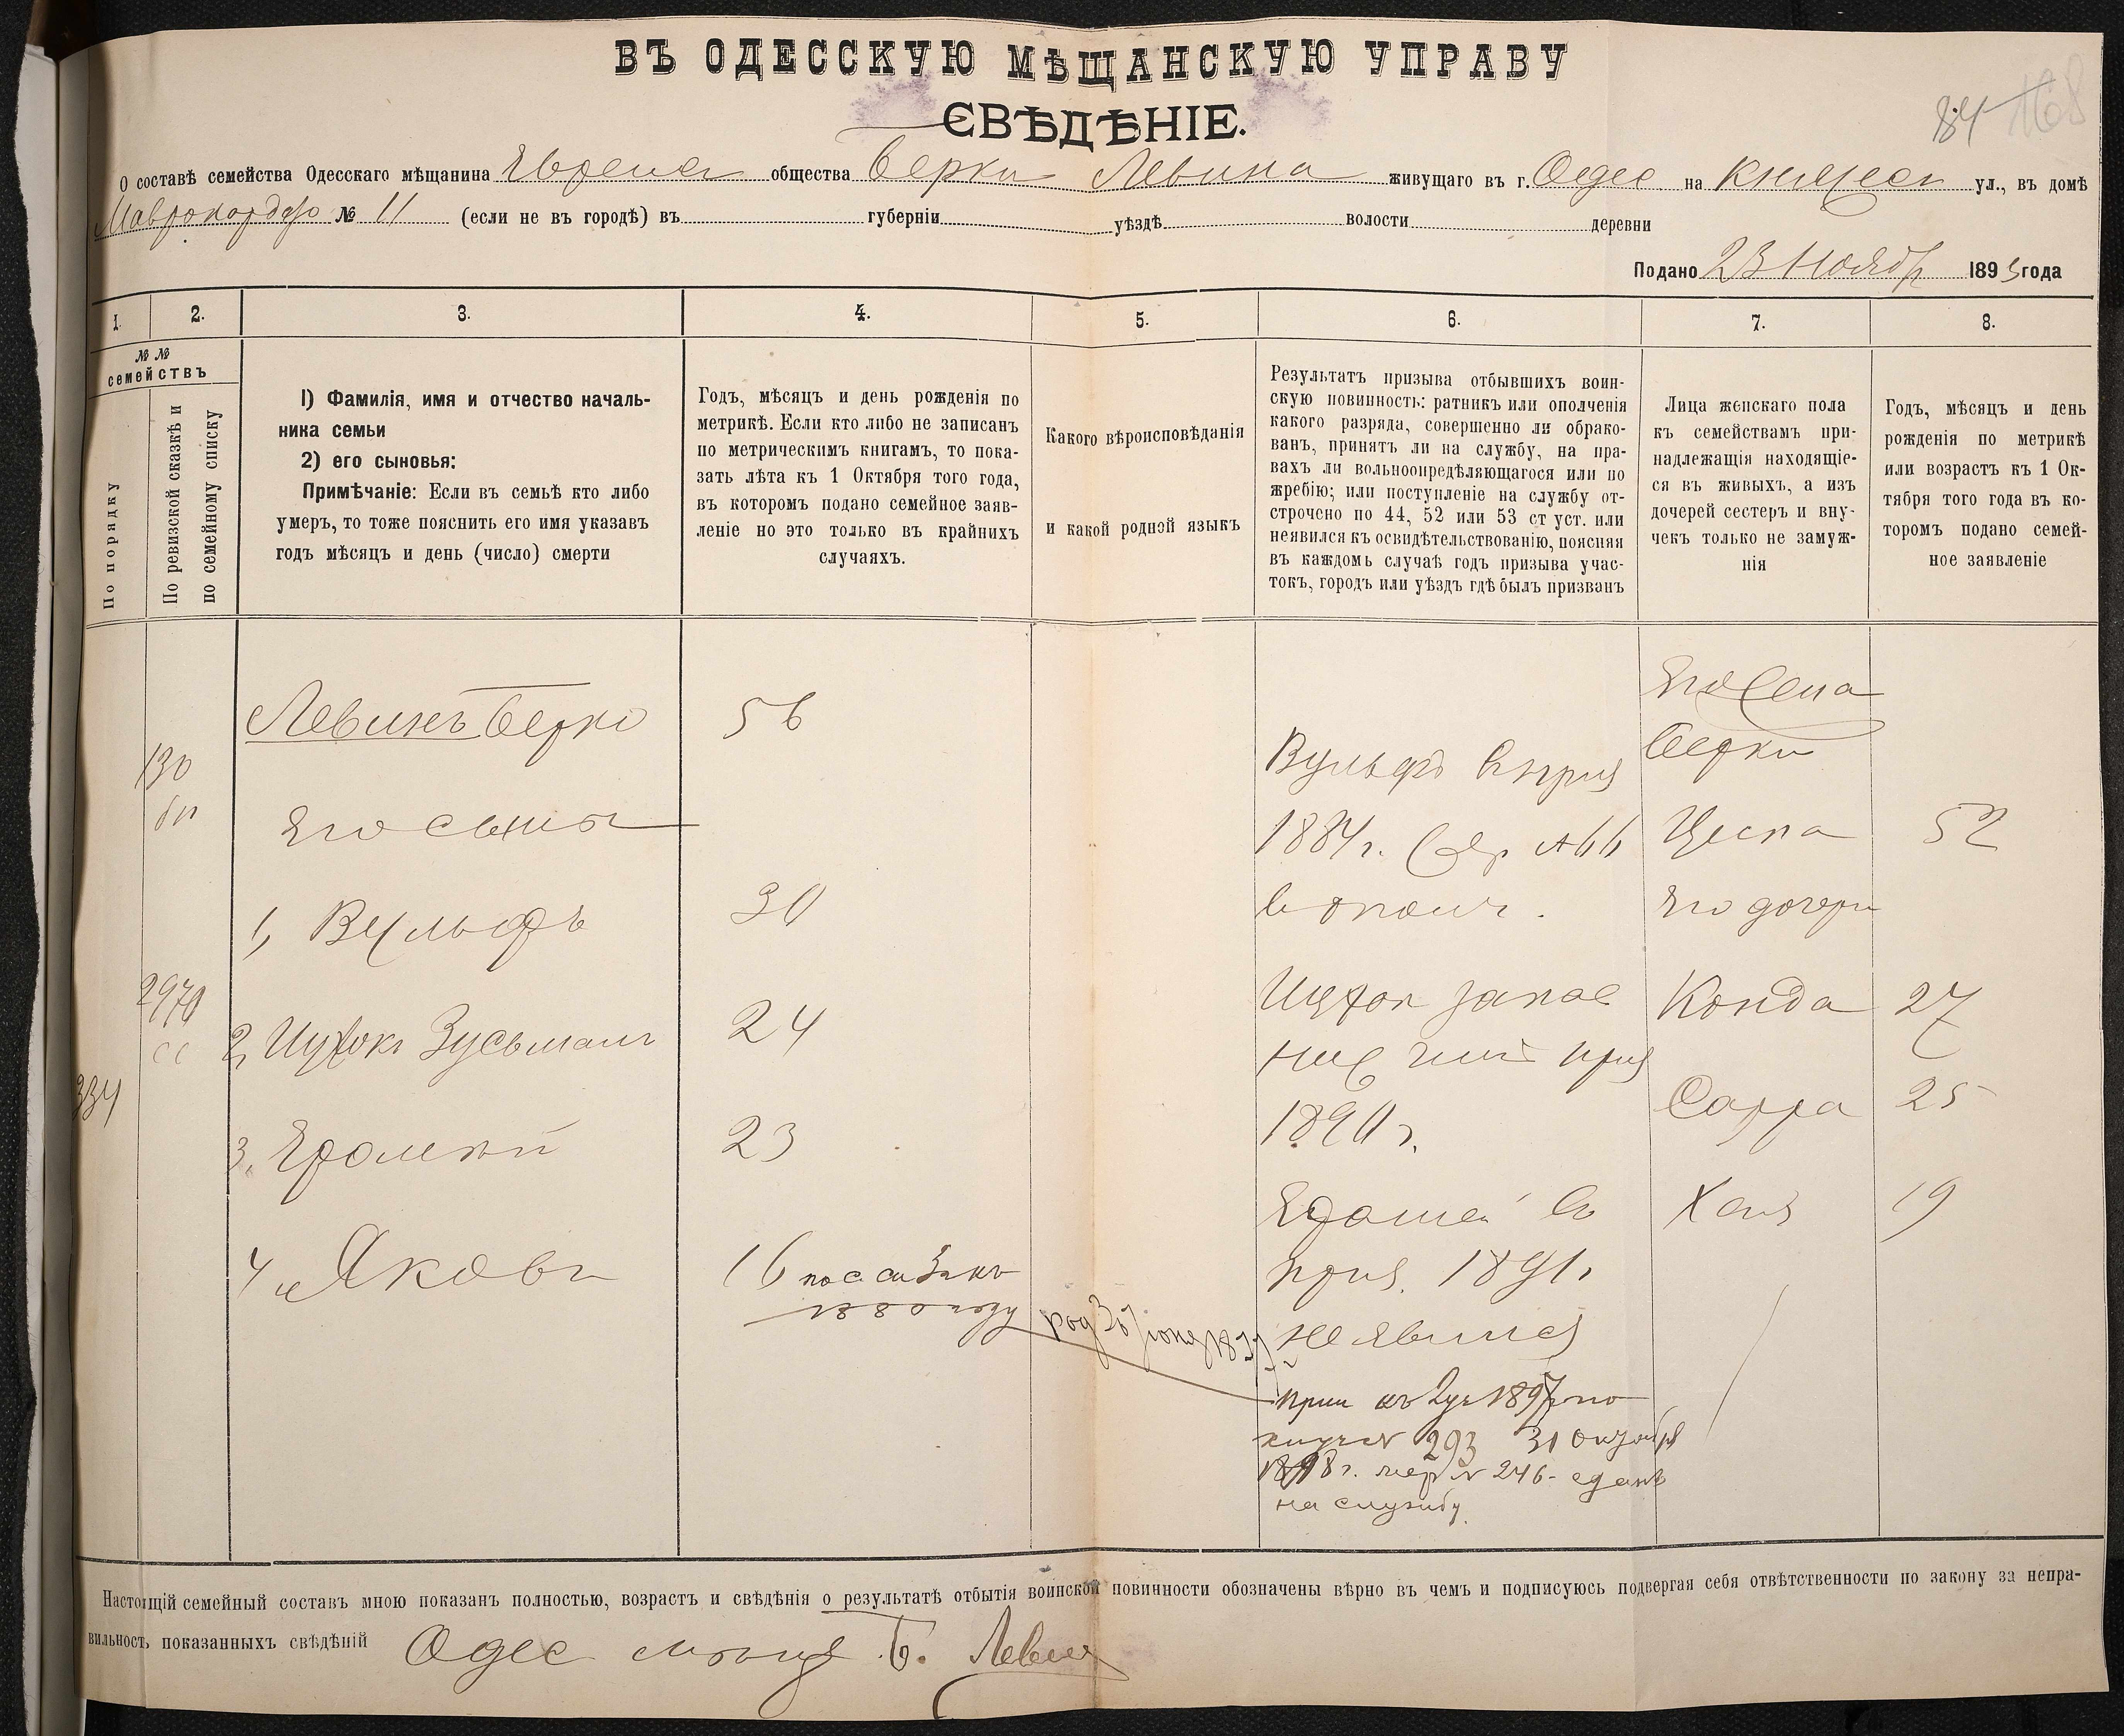 ВЪ ОДЕССКУЮ МѢЩАНСКУЮ УПРАВУ
СВѢДѢНІЕ.
84 168
О составѣ семейства Одесскаго мѣщанина Еврейск общества Берки Левина живущаго въ г. Одес на Княжеск ул., въ домѣ
Маврокордато № 11 (если не въ городѣ) въ губерніи уѣздѣ волости деревни
Подано 23 Ноябр 1893 года
1. 2. 3. 4. 5. 6. 7. 8.
№ №
семействъ
По порядку
По ревизской сказкѣ и
по семейному списку
1) Фамилія, имя и отчество началь-
ника семьи
2) его сыновья:
Примѣчаніе: Если въ семьѣ кто либо
умеръ, то тоже пояснить его имя указавъ
годъ мѣсяцъ и день (число) смерти
Годъ, мѣсяцъ и день рожденія по
метрикѣ. Если кто либо не записанъ
по метрическимъ книгамъ, то пока-
зать лѣта къ 1 Октября того года,
въ которомъ подано семейное заяв-
леніе но это только въ крайнихъ
случаяхъ.
Какого вѣроисповѣданія
и какой родной языкъ
Результатъ призыва отбывшихъ воин-
скую повинность: ратникъ или ополченія
какого разряда, совершенно ли обрако-
ванъ, принятъ ли на службу, на пра-
вахъ ли вольноопредѣляющагося или по
жребію; или поступленіе на службу от-
строчено по 44, 52 или 53 ст уст. или
неявился къ освидѣтельствованію, поясняя
въ каждомъ случаѣ годъ призыва учас-
токъ, городъ или уѣздъ гдѣ былъ призванъ
Лица женскаго пола
къ семействамъ при-
надлежащія находящіе-
ся въ живыхъ, а изъ
дочерей сестеръ и вну-
чекъ только не замуж-
нія
Годъ, мѣсяцъ и день
рожденія по метрикѣ
или возрастъ къ 1 Ок-
тября того года въ ко-
торомъ подано семей-
ное заявленіе
130
2970
334
Левинъ Берко 56
Его сыны
1, Вульфъ 30
2, Ицхокъ Зусьманъ 24
3, 23
4 Яковъ 16
1880 году
род 30 Іюня 1877
Вульфъ въ приз
1884 г.
в ополч.
Ицхок запас
приз
1890 г.
въ
приз. 1891 г
не явился
Прин въ 2 уч 1897 г по
№ 293 31 Октября
1898 г. № 246 - сданъ
на службу.
Его жена
Берки
Цепа 52
Его дочери
Конда 27
Сарра 25
Хая 19
Настоящій семейный составъ мною показанъ полностью, возрастъ и свѣдѣнія о результатѣ отбытія воинской повинности обозначены вѣрно въ чемъ и подписуюсь подвергая себя отвѣтственности по закону за непра-
вильность показанныхъ свѣдѣній Одес мѣщ Б. Левин